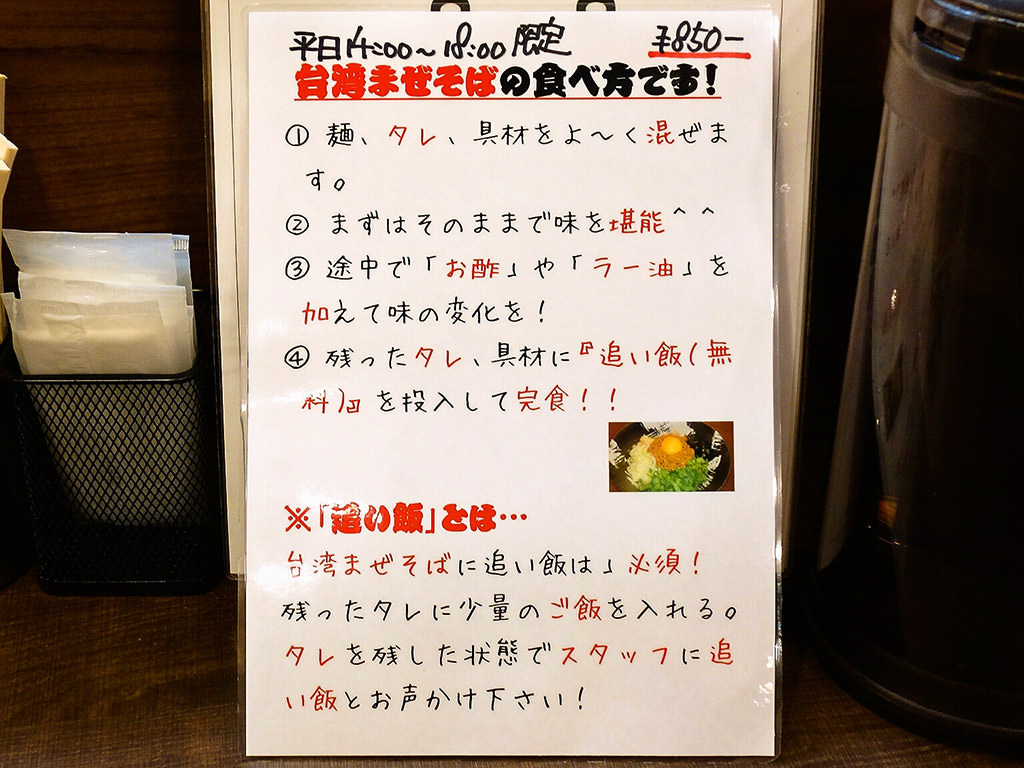 平日14:00〜18:00限定 ¥850-
台湾まぜそばの食べ方です！
① 麺、タレ、具材をよ〜く混ぜま
す。
② まずはそのままで味を堪能＾＾
③ 途中で「お酢」や「ラー油」を
加えて味の変化を！
④ 残ったタレ、具材に『追い飯(無
料)』を投入して完食！！
※「追い飯」とは…
台湾まぜそばに追い飯は」必須！
残ったタレに少量のご飯を入れる。
タレを残した状態でスタッフに追
い飯とお声かけ下さい！